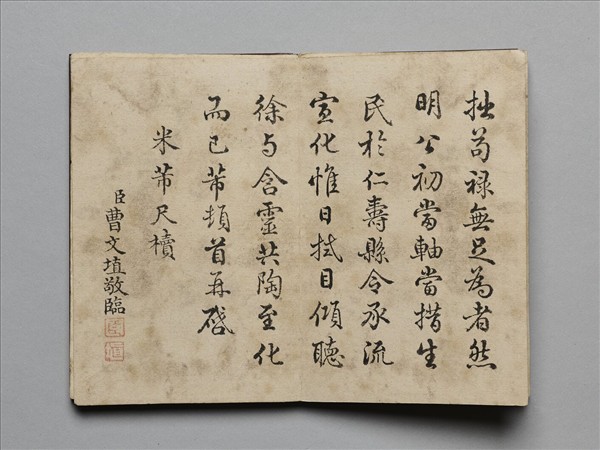 拙苟祿無足為者然
明公初當軸當措生
民於仁壽縣令承流
宣化惟日拭目傾聽
徐與含靈共陶至化
而已芾頓首再啓
米芾尺牘
臣曹文埴敬臨